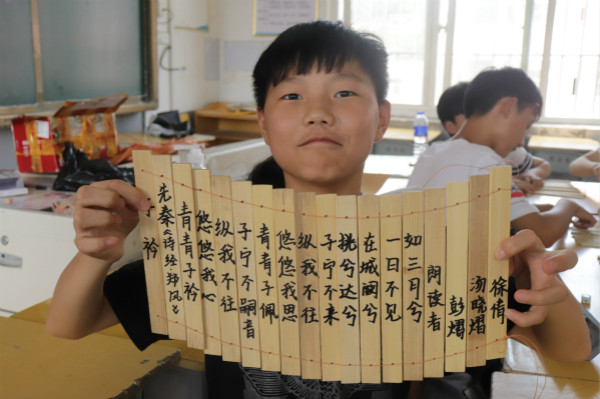 子衿
先秦《诗经·郑风》
青青子衿
悠悠我心
纵我不往
子宁不嗣音
青青子佩
悠悠我思
纵我不往
子宁不来
挑兮达兮
在城阙兮
一日不见
如三月兮
朗读者
彭熠
汤晓熠
徐倩